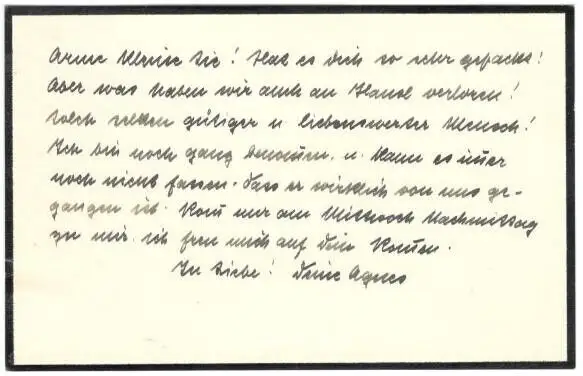 Arme kleine Sie! Hat es dich so sehr gepackt!
Aber was haben wir auch an Hansl verloren!
Solch selten gütiger u liebenswerter Mensch!
Ich bin noch ganz benomen. u. kann es imer
noch nicht fassen. dass er wirklich von uns ge-
gangen ist. Kom nur am Mittwoch Nachmittag
zu mir. ich freu mich auf dein Komen.
In Liebe! Deine Agnes